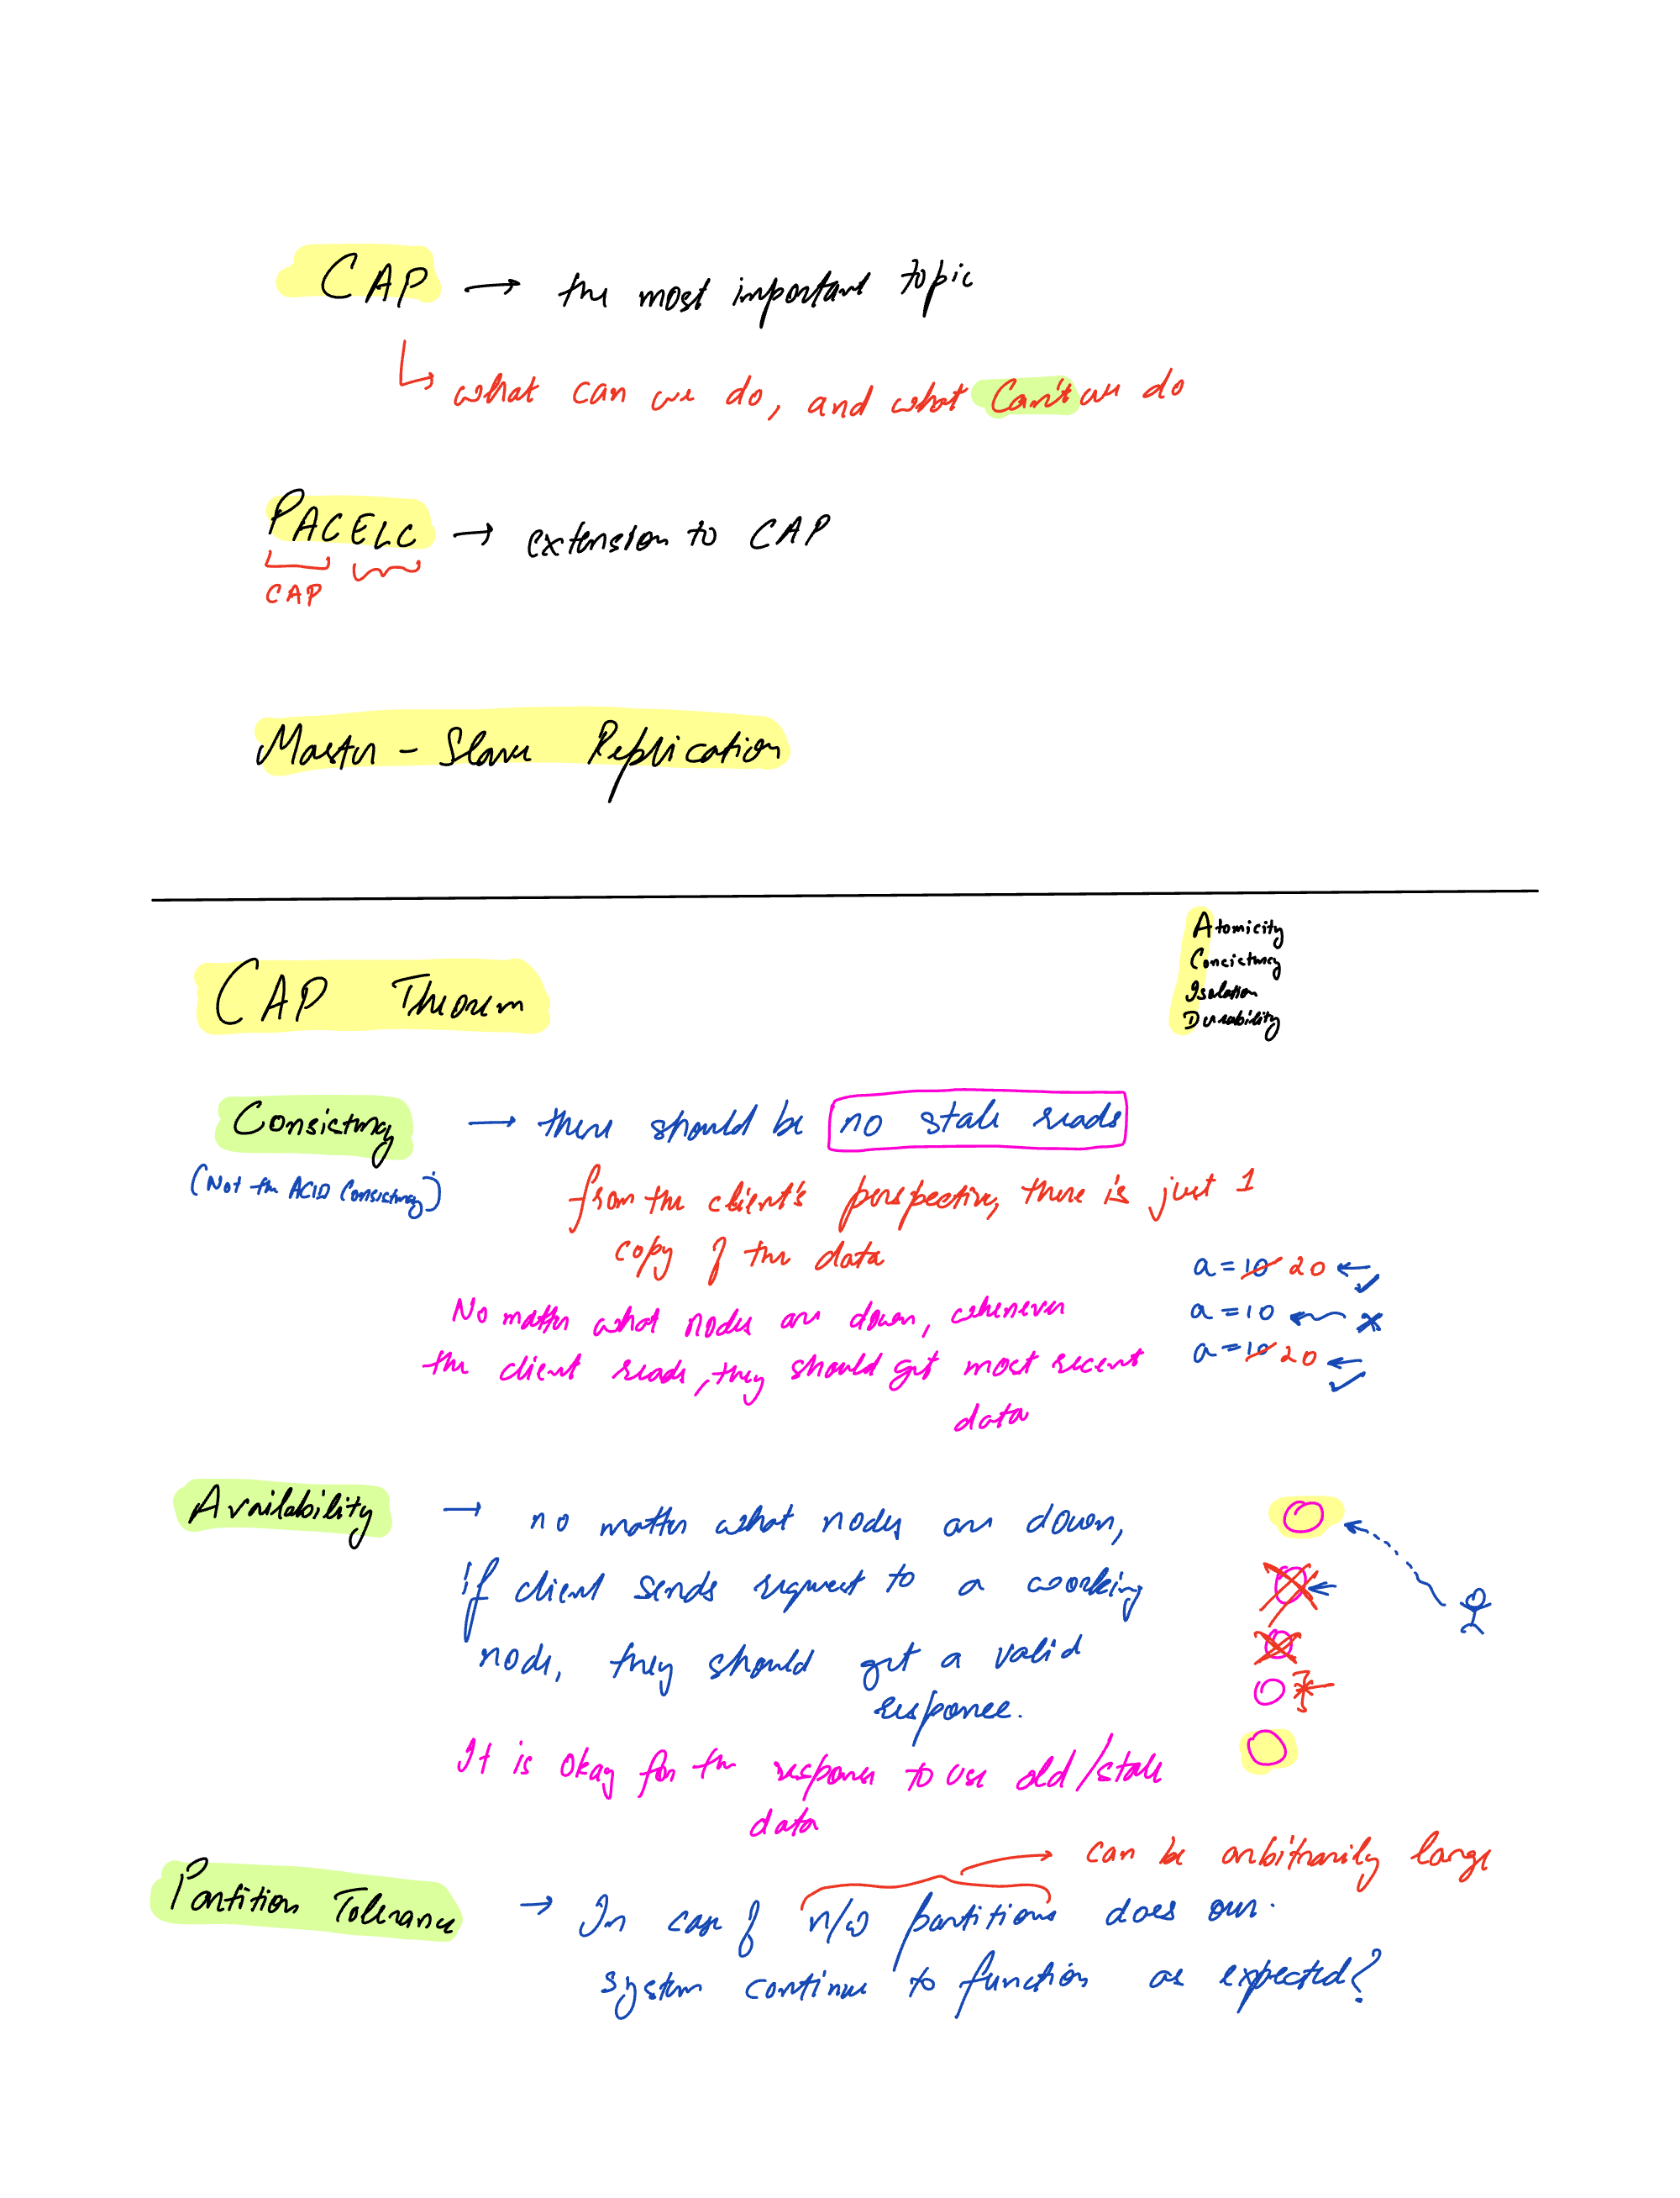 CAP → the most important topic
↳ what can we do, and what can't we do
PACELC → extension to CAP
CAP
Master - Slave Replication
Atomicity
Consistency
Isolation
Durability
CAP Theorem
Consistency → there should be no stale reads
(Not the ACID Consistency)
from the client's perspective, there is just 1
copy of the data
a = 10 20 ← ✓
No matter what nodes are down, whenever
a = 10 ← ×
the client reads, they should get most recent
a = 10 20 ← ✓
data
Availability → no matter what nodes are down,
if client sends request to a working
node, they should get a valid
response.
It is okay for the response to use old/stale
data
→ can be arbitrarily large
Partition Tolerance → In case of n/w partitions does our
system continue to function as expected?